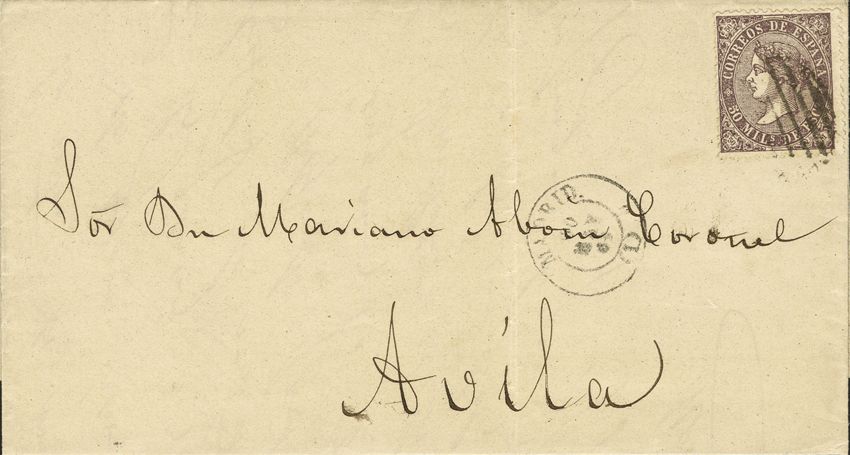 CORREOS DE ESPAÑA
50 MILS DE
Sor Dn Mariano Aboin Coronel
MADRID
Avila